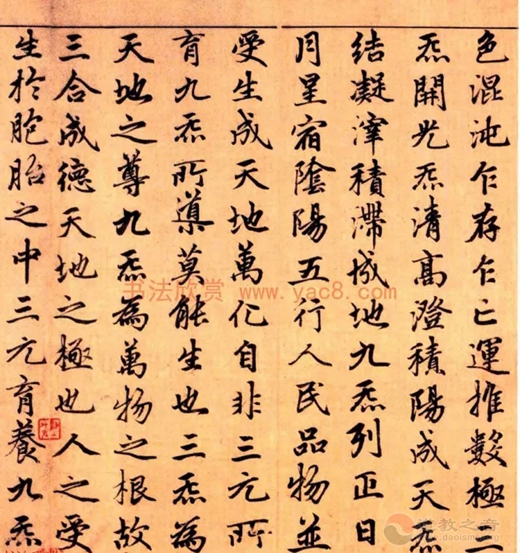 色混沌乍存乍亡運推數極三
炁開光炁清高澄積陽成天炁
結凝滓積滯成地九炁列正日
月星宿陰陽五行人民品物並
受生成天地萬化自非三元所
育九炁所導莫能生也三炁為
天地之尊九炁為萬物之根故
三合成德天地之極也人之受
生於胞胎之中三元育養九炁
书法欣赏 www.yac8.com
道教之音